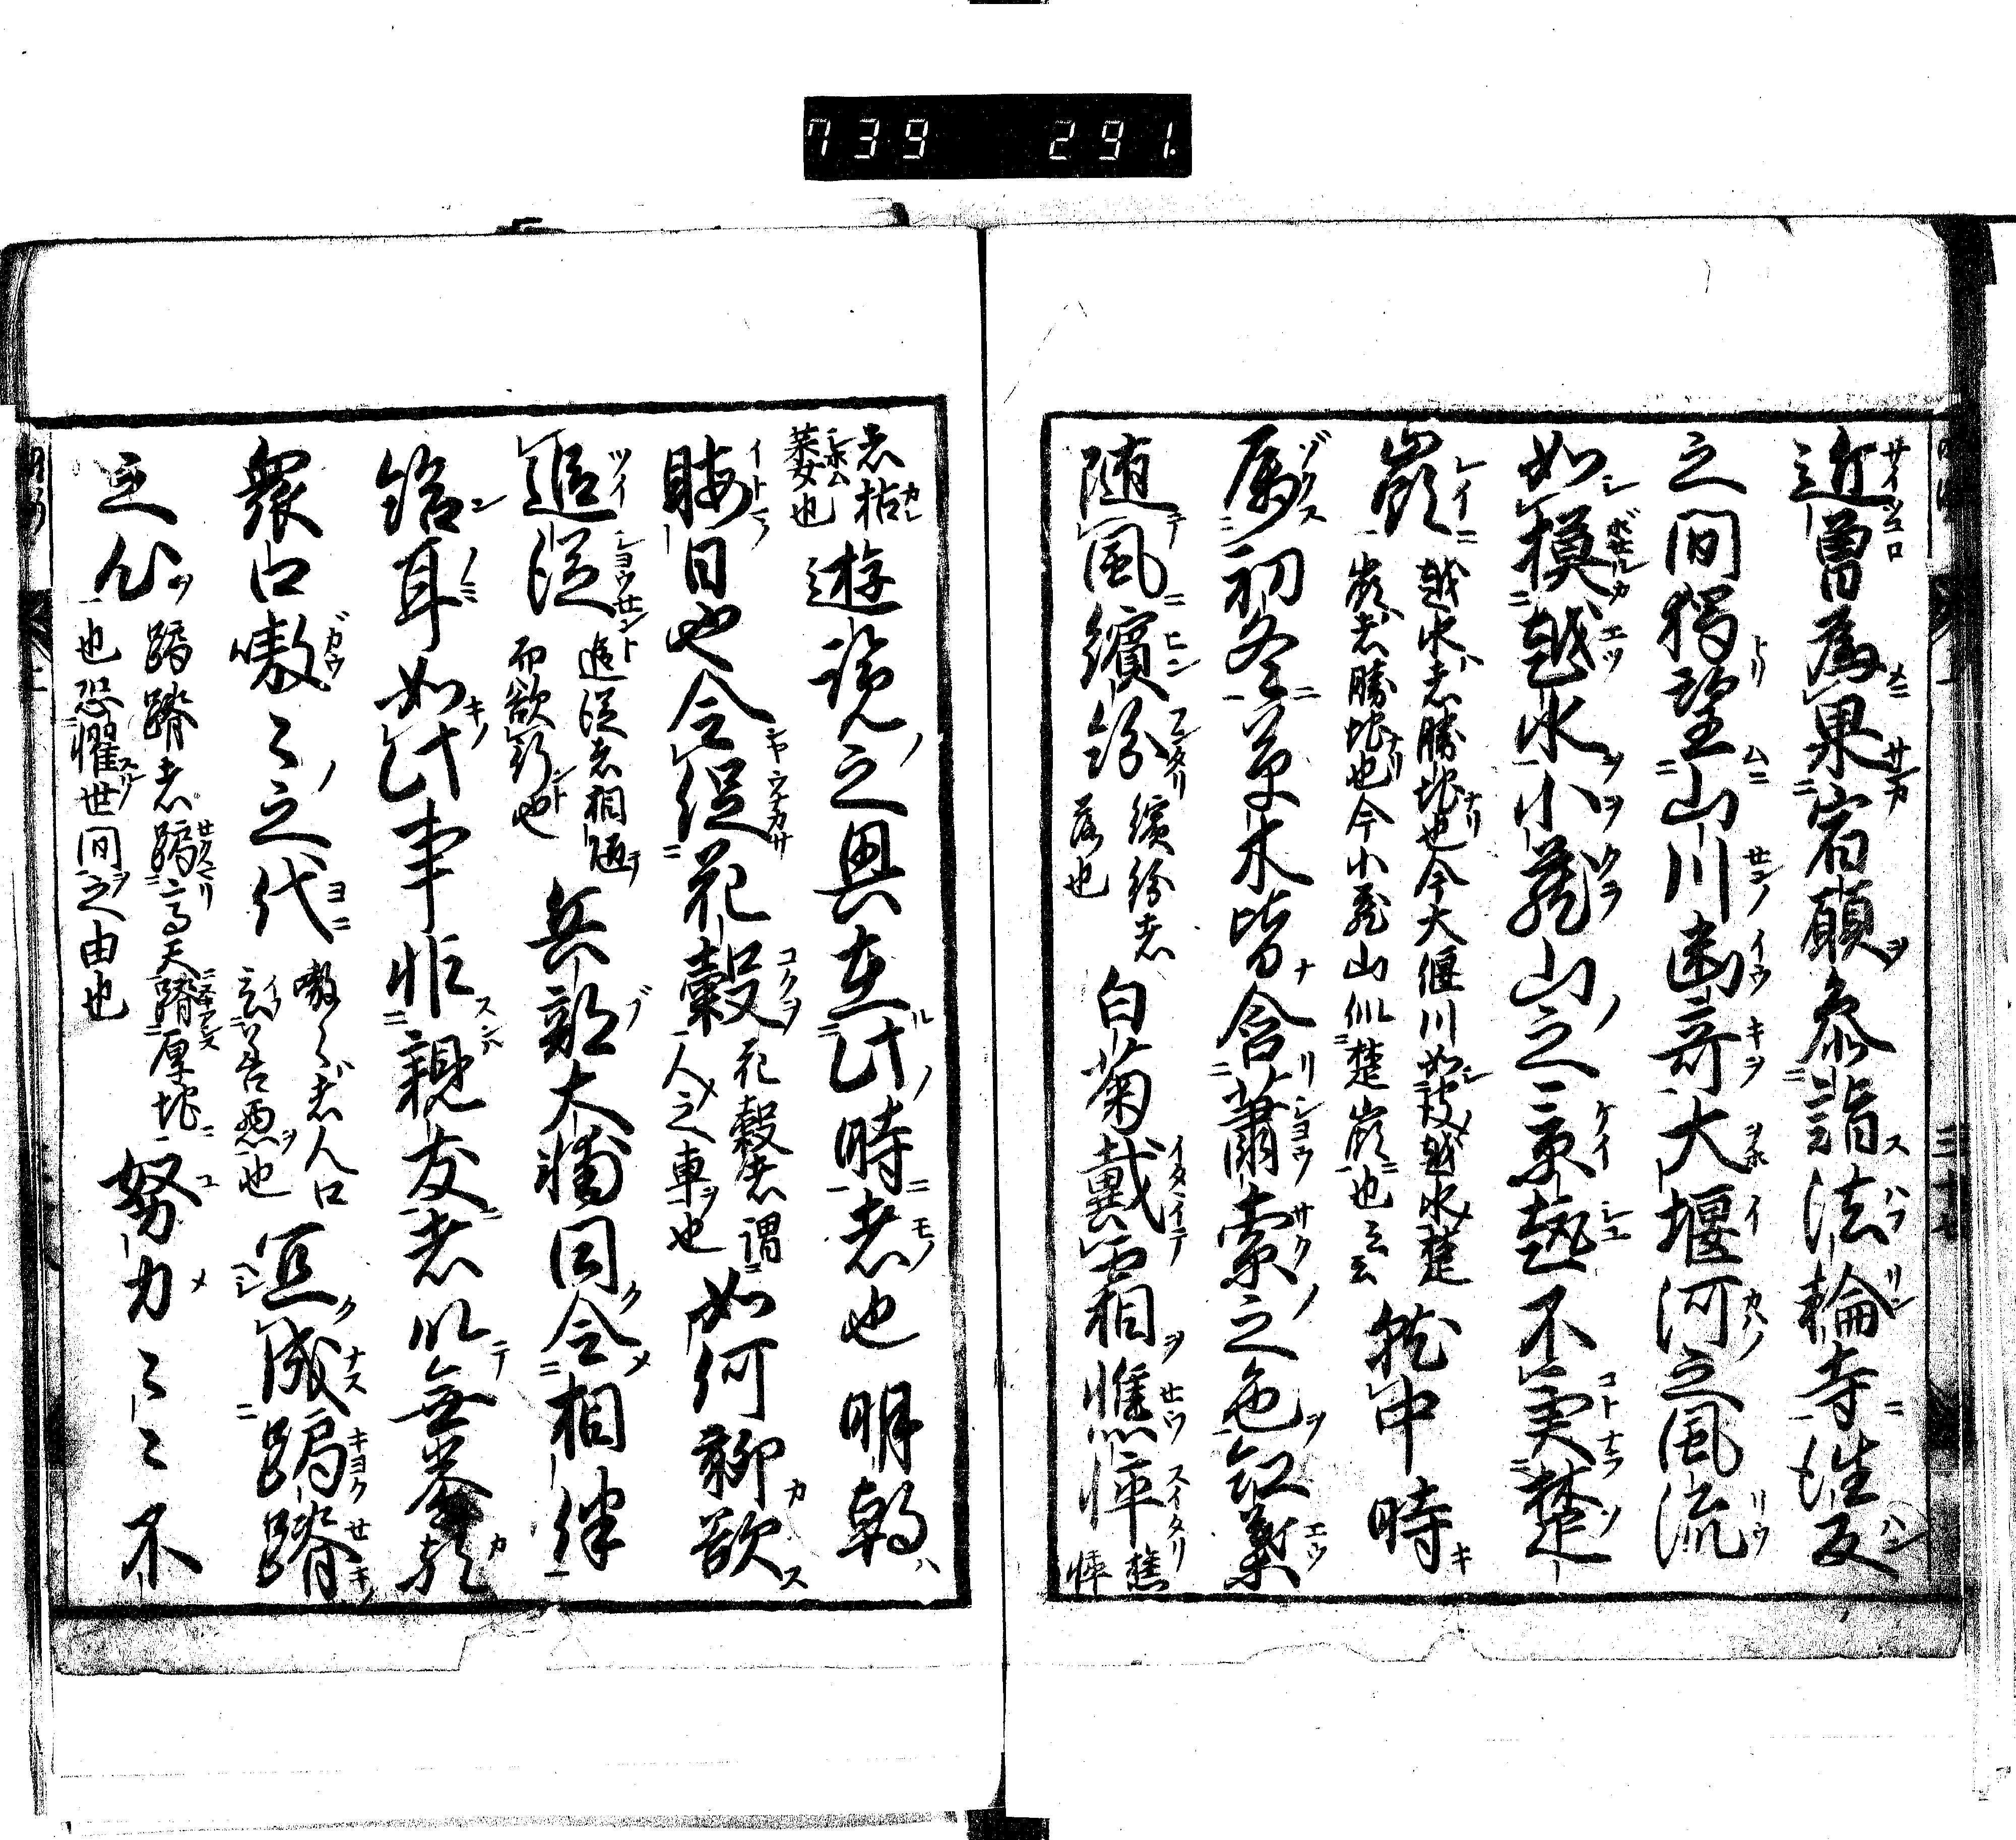 739 291
近曽為果宿願参詣法輪寺往反
之間猶望山川幽奇大堰河之風流
如摸越水小蔵山之景趣不異楚
嶺
越水者勝地也今大偃川如彼越水楚
嶺者勝地也今小蔵山似楚嶺也云云
就中時
属初冬草木皆含蕭索之色紅葉
随風繽紛
繽紛者
落也
白菊戴霜憔悴
憔
悴
者枯
萎也
遊覧之興在此時者也明朝
暇日也令促花轂
花轂者謂
人之車也
如何聊欲
追従
追従者相随
而欲行也
兵部大輔同令相伴
給耳如此事非親友者以無
衆口嗷々之代
嗷々者人口
云苦悪也
宜成跼蹐
之
跼蹐者跼高天蹐厚地
也恐懼世間之由也
努力々々不